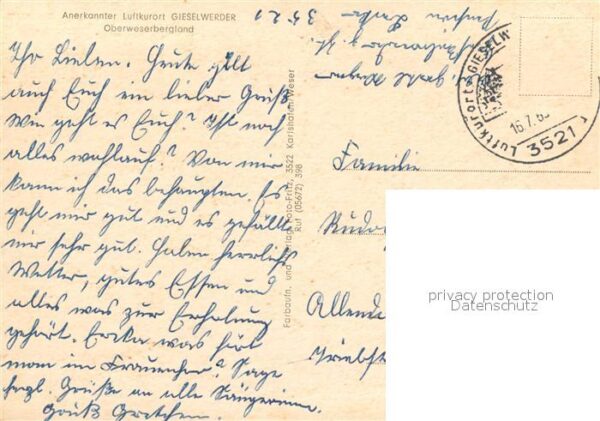 Anerkannter Luftkurort GIESELWERDER
Oberweserbergland
3521
Ihr Lieben. Heute gilt
auch Euch ein lieber Gruß
Wie geht es Euch? Ist noch
alles wohlauf? Von mir
kann ich das behaupten. Es
geht mir gut und es gefällt
mir sehr gut. Haben herrlichs
Wetter, gutes Essen und
alles was zur Erholung
gehört. Erika was hört
man im Frauenchor? Sage
herzl. Grüße an alle Sängerinnen.
Gruß Gretchen.
Farbaufn. und Verlag Foto-Fritz, 3522 Karlshafen/Weser
Ruf (05672) 398
Luftkurort GIESELW
16.7.6
3521
Familie
Rudo
Allenda
Triebst
privacy protection
Datenschutz